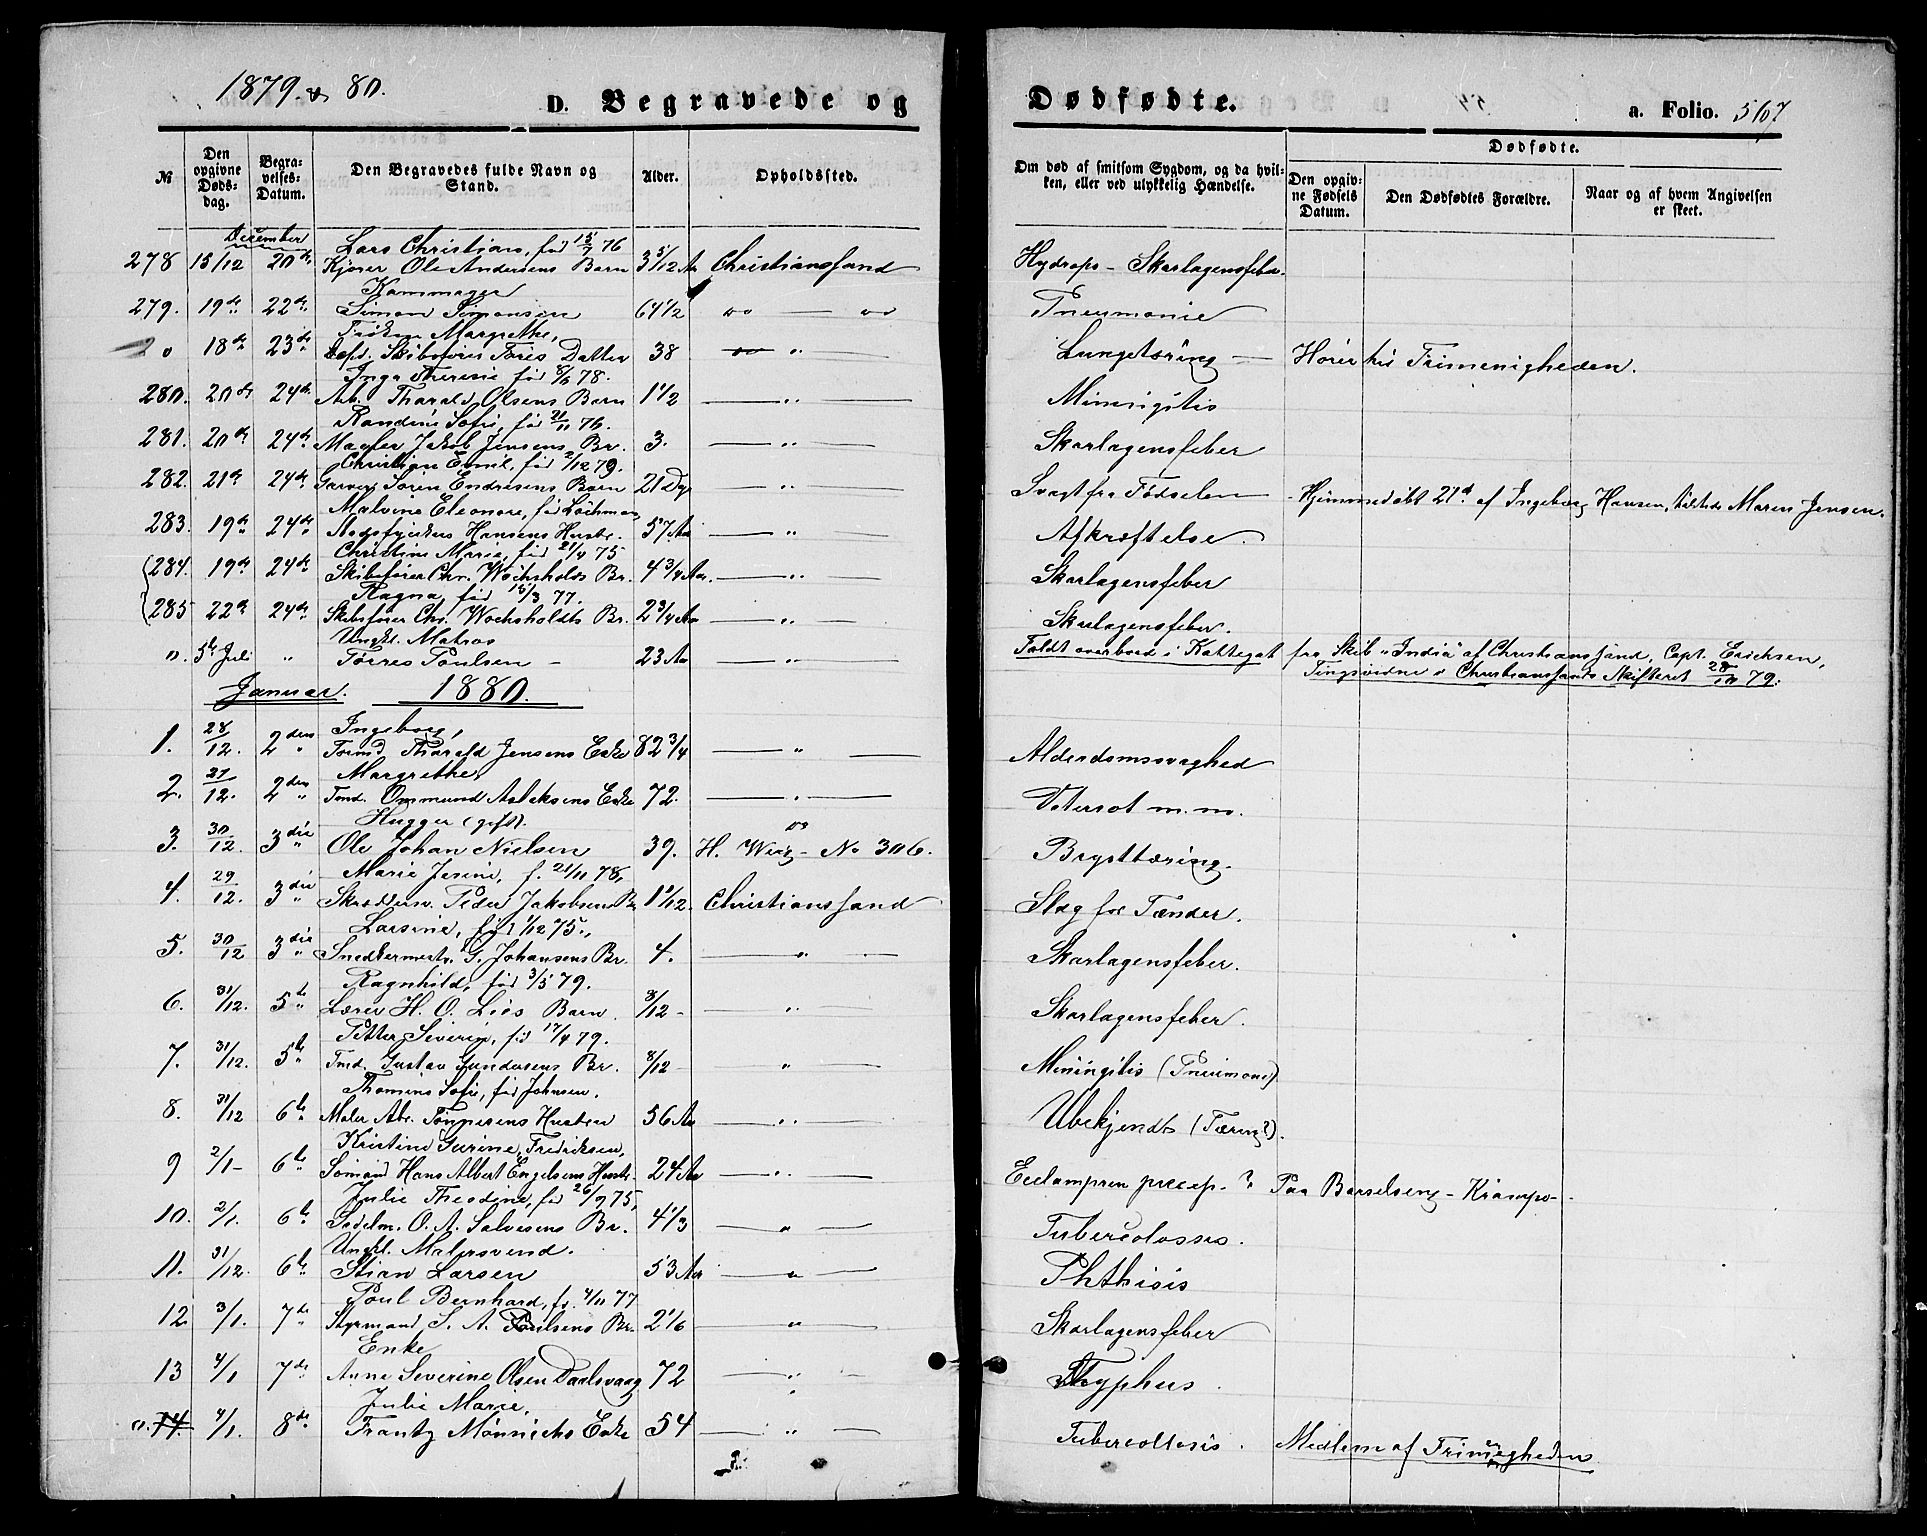 1879 & 80.
D. Begravede og
Dødfødte.
a. Folio. 567
№
Den opgivne Døds-dag.
Begra-velses-Datum.
Den Begravedes fulde Navn og Stand.
Alder.
Opholdssted.
Om død af smitsom Sygdom, og da hvil-ken, eller ved ulykkelig Hændelse.
Dødfødte.
Den opgiv-ne Fødsels Datum.
Den Dødfødtes Forældre.
Naar og af hvem Angivelsen er skeet.
December
Lars Christian, fød 15/7 76
278 15/12 20de Kjører Ole Andersens Barn 3 5/12 Aar Christianssand Hydrops - Skarlagensfeber
Kammager
279. 19de 22de Simon Simonsen 64 1/2 " — " Pneumonie
Frøken Margrethe,
0 18de 23de Skibsfører Døtter 38 " Lungetæring — Hører til Frimenigheden.
Inga Theresie fød 8/6 78.
280. 20de 24de Arb. Tharald Olsens Barn 1 1/2 — " — Miningitis
Randine Sofie, fød 21/11 76.
281. 20de 24de Mægler Jakob Jensens Br. 3. — " — Skarlagensfeber
Christian Emil, fød 2/12 79.
282. 21de 24de Garver Søren Endresens Barn 21 Dg — " — Svagt fra Fødselen — Hjemmedøbt 21de af Ingeborg Hansen, tilstede Maren Jensen.
Malvine Eleonore, fød
283. 19de 24de Hansens Hustr. 57 Aar — " — Afkræftelse.
Christine Marie, fød 21/4 75
(284. 19de 24de Skibsfører Chr. Wochsholdts Br. 4 3/4 Aar. — " — Skarlagensfeber
Ragna, fød 15/3 77.
(285 22de 24de Skibsfører Chr. Wochsholdts Br. 2 3/4 Aar — " — Skarlagensfeber.
Ungkl. Matros
0. 5te Juli " Tørres Poulsen — 23 Aar — " — Faldt overbord i Kattegat fra Skib "India" af Christianssand, Capt. Erichsen,
Tingsvidne i Christianssands Skifteret 28/10 79.
Januar. 1880.
Ingeborg,
1. 28/12. 2den Tømd. Tharald Jensens Enke 82 3/4 — " — Alderdomssvaghed
Margrethe
2. 27/12. 2den Tmd. Ommund Aslaksens Enke 72. — " — m. m.
Hugger (gift).
3. 30/12. 3die Ole Johan Nielsen 39. H. Weig - No 306. Brysttæring.
Marie Jesine, f. 21/11 78,
4. 29/12. 3die Skræddersv. Peder Jakobsens Br 1 1/12. Christianssand Slag for Tænder.
Larsine, fød 1/12 75.
5. 30/12 3die Snedkermestr. G. Johansens Br. 4. — " — Skarlagensfeber.
Ragnhild, fød 3/5 79.
6. 31/12. 5te Lærer H. O. Lies Barn 8/12 — " — Skarlagensfeber.
Petter Severin, fød 17/4 79.
7. 31/12. 5te Tmd. Gustav Gundersens Br. 8/12 — " — Miningitis (Pneumoni)
Thomine Sofie, fød Johnsen.
8. 31/12 6te Maler Abr. Tønnesens Hustru 56 Aar — " — Ubekjendt (Tæring?).
Kristine Gurine, Fredriksen,
9 2/1 - 6te Sømand Hans Albert Engelsens Hustr. 24 Aar — " — Eclampsien ? Paa Barselseng - Krampe -
Julie Theodine, fød 26/9 75,
10. 2/1. 6te Sadelm. O. A. Salvesens Br. 4 1/3 — " — Tubercolossis.
Ungkl. Malersvend.
11. 31/12. 6te Stian Larsen 53 Aar — " — Phthisis
Poul Bernhard, fø. 4/11 77
12. 3/1. 7de Styrmand S. A. Poulsens Br. 2 1/6 — " — Skarlagensfeber
Enke
13 4/1 7de Anne Severine Olsen Daalsvaag 72 — " — Typhus.
Julie Marie,
0. 14. 4/1. 8de Frantz Mønnichs Enke 54 — " — Tubercolosis. Medlem af Frimenigheden